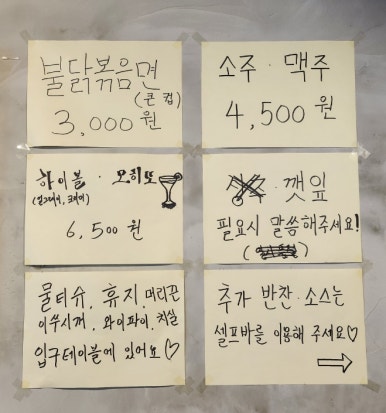 불닭볶음면
(큰 컵)
3,000 원
소주 · 맥주
4,500 원
하이볼 · 모히또
6,500 원
깻잎
필요시 말씀해주세요!
물티슈, 휴지, 머리끈
이쑤시개, 와이파이, 치실
입구테이블에 있어요♡
추가 반찬 · 소스는
셀프바를 이용해 주세요♡
→